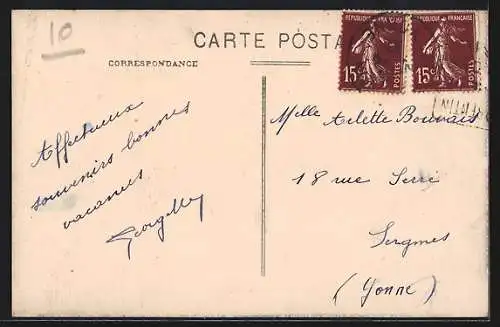 10
CARTE POSTA
CORRESPONDANCE
RÉPUBLIQUE FRANÇAISE
15c
POSTES
RÉPUBLIQUE FRANÇAISE
15c
POSTES
Affectueux
souvenirs bonnes
vacances
Melle Arlette Bouvais
18 rue Serré
Sergines
(Yonne)